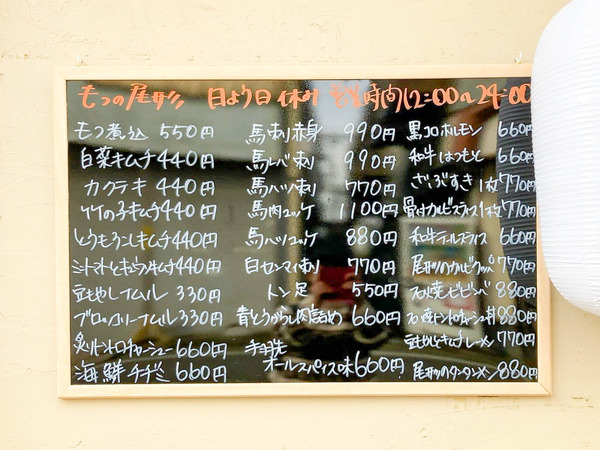 もつの尾形 日より日休み 営業時間12:00〜24:00
もつ煮込 550円
白菜キムチ 440円
カクテキ 440円
竹の子キムチ 440円
とうもろこしキムチ 440円
ミニトマトときゅうりキムチ 440円
豆もやしナムル 330円
ブロッコリーナムル 330円
炙りトントロチャーシュー 660円
海鮮チヂミ 660円
馬刺赤身 990円
馬レバ刺 990円
馬ハツ刺 770円
馬肉ユッケ 1100円
馬ハツユッケ 880円
白センマイ刺 770円
トン足 550円
青とうがらし肉詰め 660円
手羽先
オールスパイス味 660円
黒コロホルモン 660円
和牛はつもと 660円
ざぶすき1枚 770円
骨付カルビスライス1枚 770円
和牛テールスライス 660円
尾形のカルビクッパ 770円
石焼ビビンバ 880円
石焼トントロチャーシュー丼 880円
豆もやしキムチラーメン 770円
尾形のタンタンメン 880円